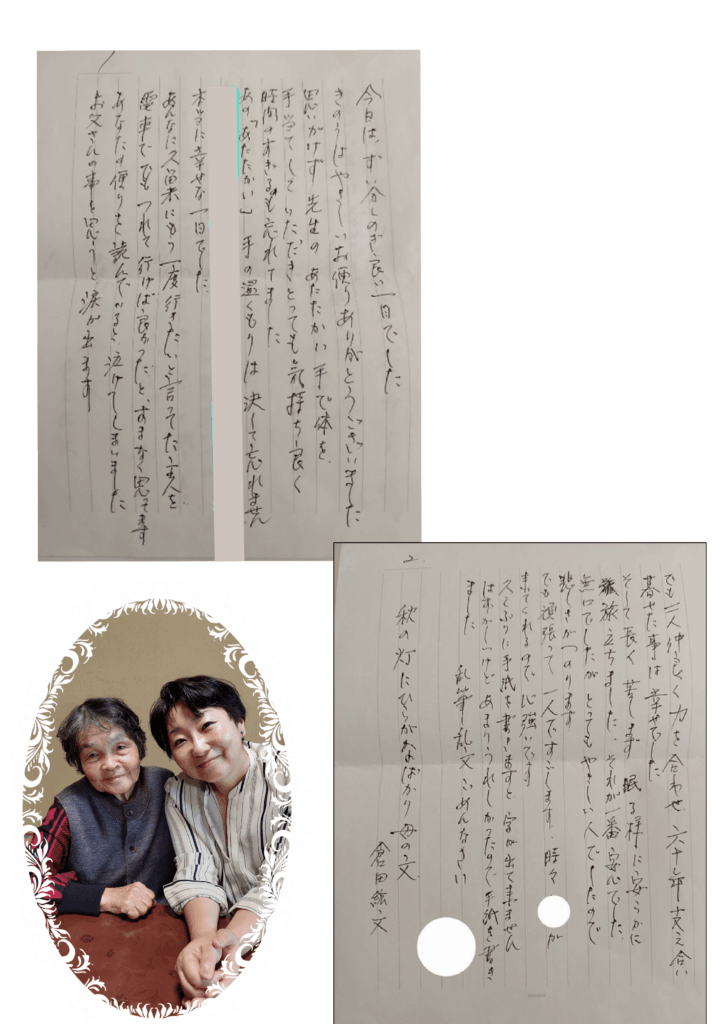 今日は、ずい分しのぎ良い一日でした
きのうはやさしいお便りありがとうございました
思いがけず先生のあたたかい手で体を、
手当てしていただきとっても気持ち良く
時間のすぎるのも忘れてました
あの「あたたかい」手の温くもりは決して忘れません
本当に幸せな一日でした
あんなに久留米にもう一度行きたいと言ってた主人を
電車ででもつれて行けば良かったと、すまなく思ってます
あなたの便りを読んでると、泣けてしまいました
お父さんの事を思うと、涙が出ます
2
でも二人仲良く力を合わせ六十年支え合い
暮せた事は幸せでした
そして長く苦しまず眠る様に安らかに
旅立ちました、それが一番安心でした、
無口でしたがとってもやさしい人でしたので
淋しさがつのります
でも頑張って一人ですごします、時々 が
来てくれるので心強いです
久しぶりに手紙を書きますと字が出て来ません
はずかしいけどあまりうれしかったので手紙を書き
ました 乱筆乱文ごめんなさい
秋の灯にひらがなばかり母の文
倉田絋文